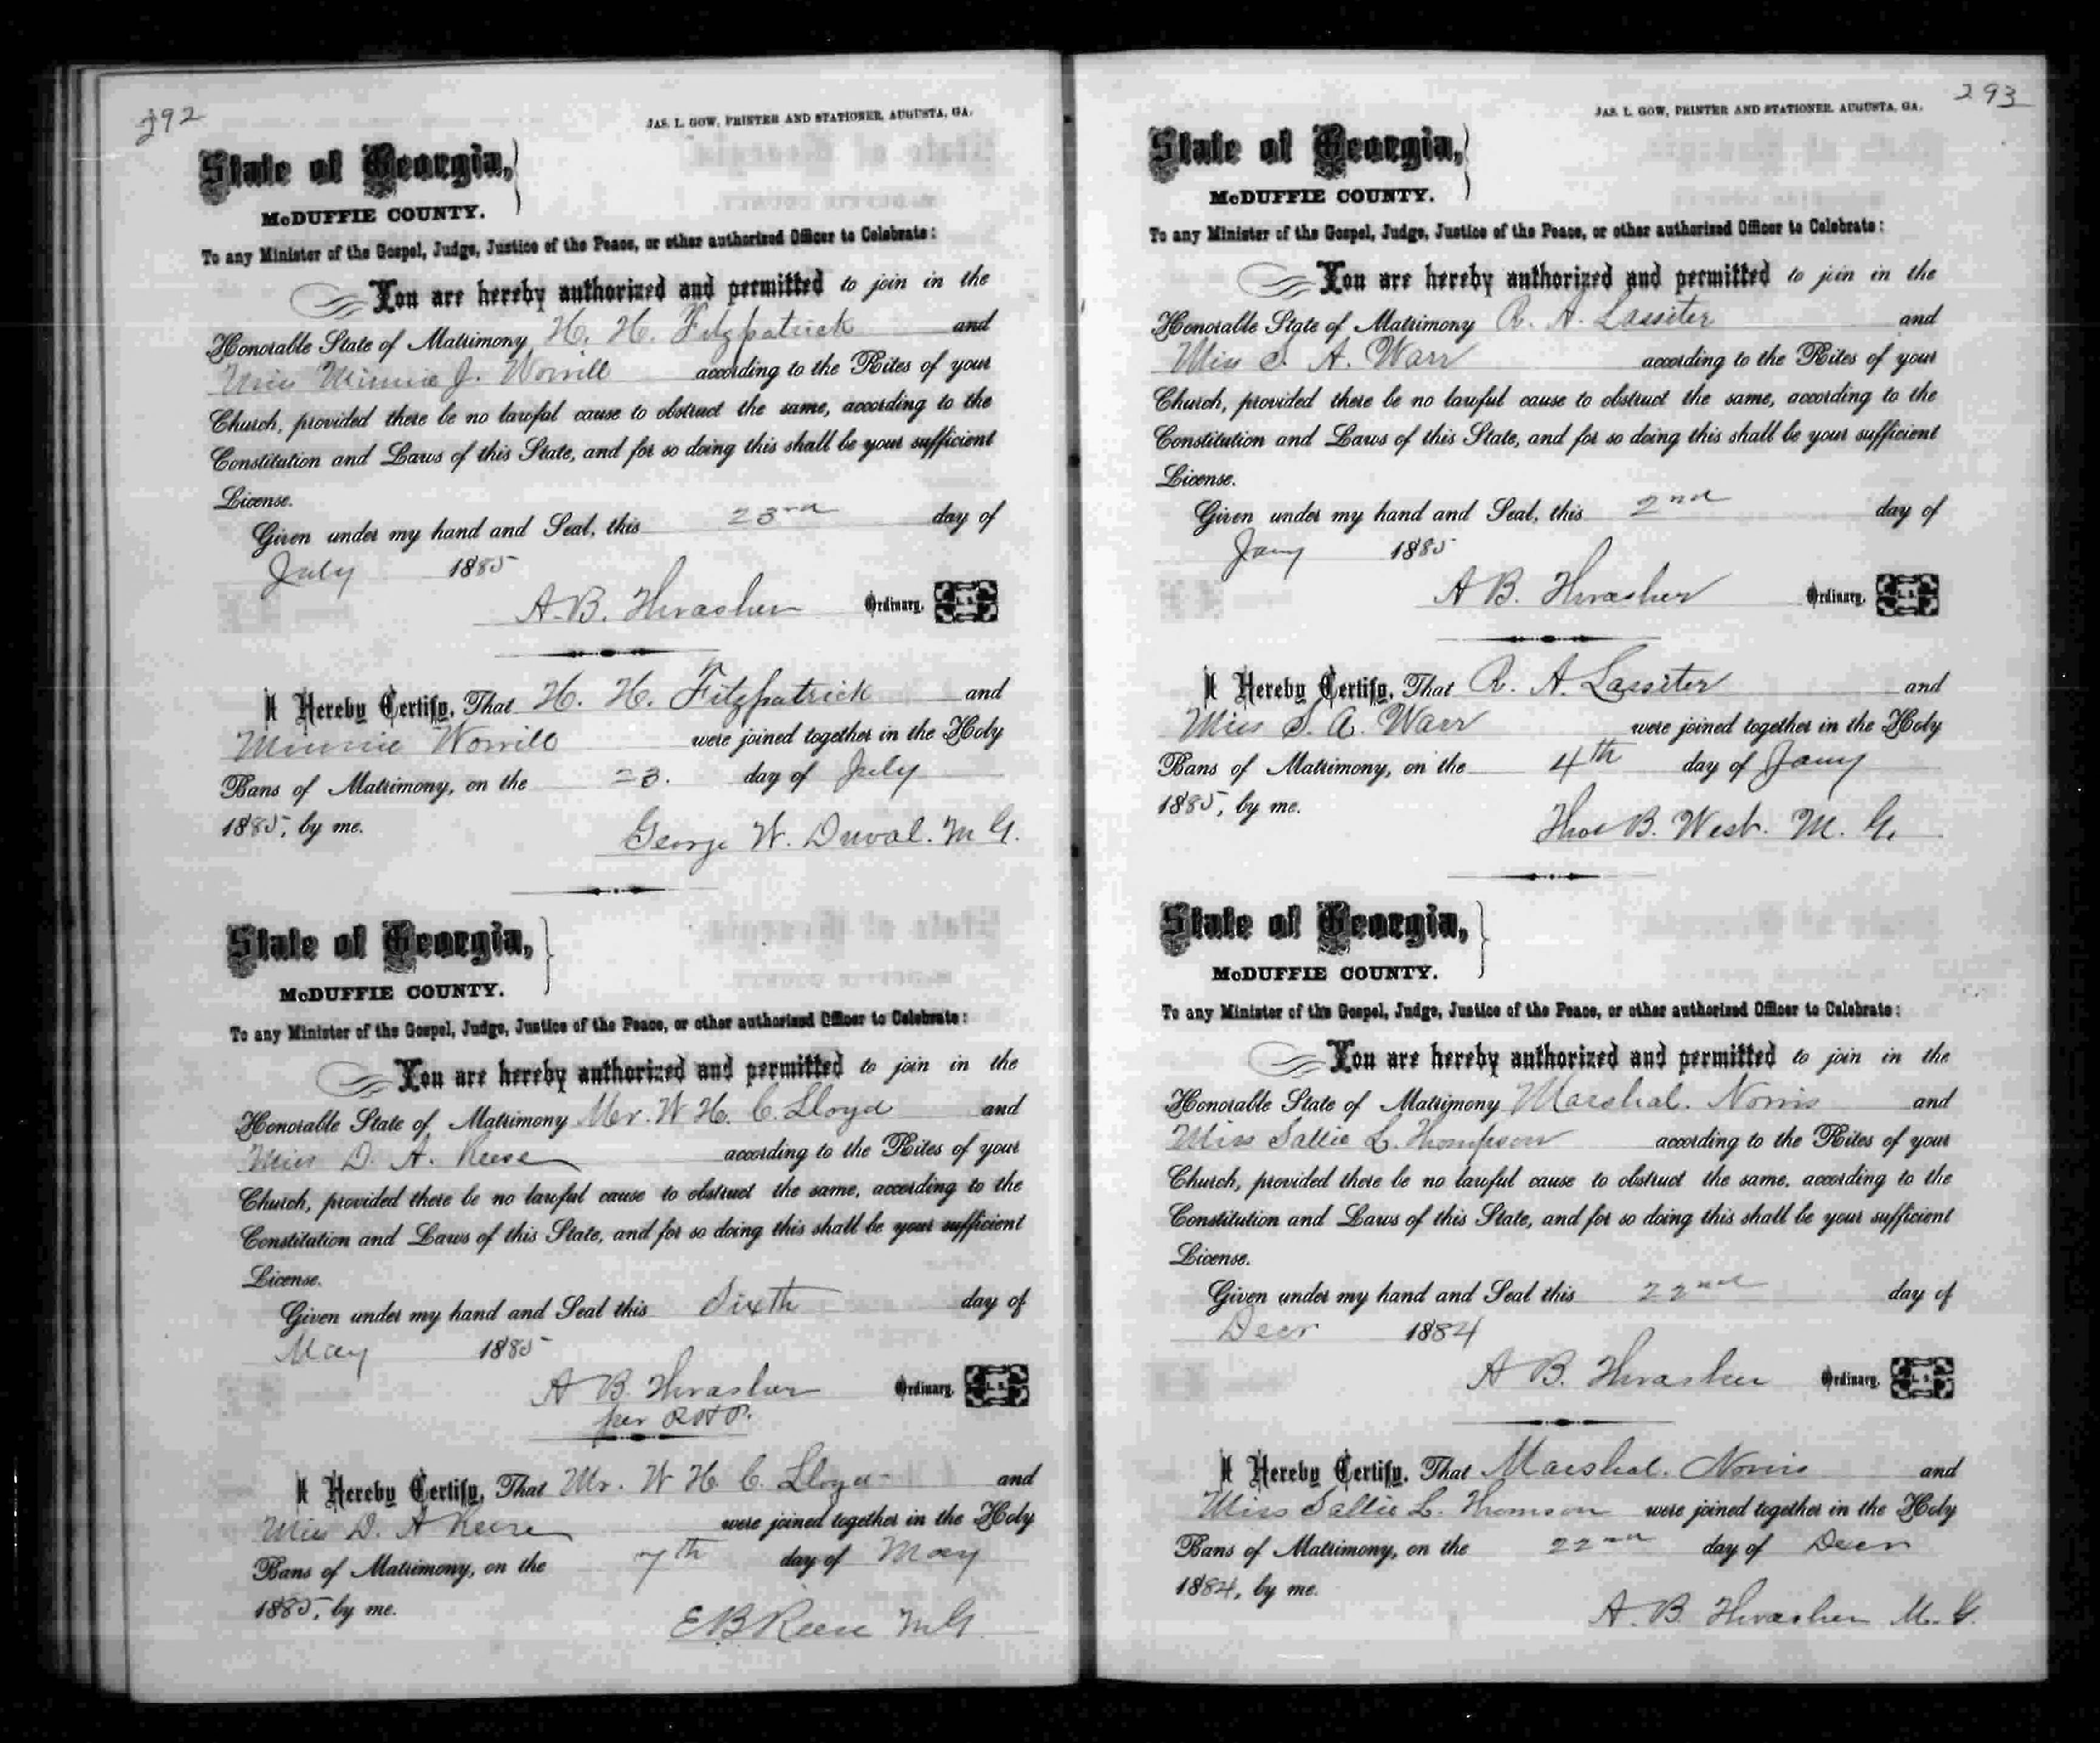 292
JAS. L. GOW, PRINTER AND STATIONER, AUGUSTA, GA.
State of Georgia,
McDUFFIE COUNTY.
To any Minister of the Gospel, Judge, Justice of the Peace, or other authorized Officer to Celebrate:
You are hereby authorized and permitted to join in the
Honorable State of Matrimony H. H. Fitzpatrick and
Miss Minnie J. Worrill according to the Rites of your
Church, provided there be no lawful cause to obstruct the same, according to the
Constitution and Laws of this State, and for so doing this shall be your sufficient
License.
Given under my hand and Seal, this 23rd day of
July 1885
A. B. Thrasher Ordinary. L. S.
I Hereby Certify, That H. H. Fitzpatrick and
Minnie Worrill were joined together in the Holy
Bans of Matrimony, on the 23. day of July
1885, by me.
George W. Duval. M G.
State of Georgia,
McDUFFIE COUNTY.
To any Minister of the Gospel, Judge, Justice of the Peace, or other authorized Officer to Celebrate:
You are hereby authorized and permitted to join in the
Honorable State of Matrimony Mr. W H. C. Lloyd and
Miss D. A. Reese according to the Rites of your
Church, provided there be no lawful cause to obstruct the same, according to the
Constitution and Laws of this State, and for so doing this shall be your sufficient
License.
Given under my hand and Seal this Sixth day of
May 1885
A B. Thrasher Ordinary. L. S.
per
I Hereby Certify, That Mr. W H. C. Lloyd and
Miss D. A Reese were joined together in the Holy
Bans of Matrimony, on the 7th day of May
1885, by me.
E B Reese M G
293
JAS. L. GOW, PRINTER AND STATIONER, AUGUSTA, GA.
State of Georgia,
McDUFFIE COUNTY.
To any Minister of the Gospel, Judge, Justice of the Peace, or other authorized Officer to Celebrate:
You are hereby authorized and permitted to join in the
Honorable State of Matrimony R. A. Lasseter and
Miss S. A. Warr according to the Rites of your
Church, provided there be no lawful cause to obstruct the same, according to the
Constitution and Laws of this State, and for so doing this shall be your sufficient
License.
Given under my hand and Seal, this 2nd day of
Jany 1885
A B. Thrasher Ordinary. L. S.
I Hereby Certify, That R. A. Lasseter and
Miss S. A. Warr were joined together in the Holy
Bans of Matrimony, on the 4th day of Jany
1885, by me.
Thos B. West. M. G.
State of Georgia,
McDUFFIE COUNTY.
To any Minister of the Gospel, Judge, Justice of the Peace, or other authorized Officer to Celebrate:
You are hereby authorized and permitted to join in the
Honorable State of Matrimony Marshal. Norris and
Miss Sallie L. Thompson according to the Rites of your
Church, provided there be no lawful cause to obstruct the same, according to the
Constitution and Laws of this State, and for so doing this shall be your sufficient
License.
Given under my hand and Seal this 22nd day of
Decr 1884
A B. Thrasher Ordinary. L. S.
I Hereby Certify, That Marshal. Norris and
Miss Sallie L. Thomson were joined together in the Holy
Bans of Matrimony, on the 22nd day of Decr
1884, by me.
A. B. Thrasher M. G.